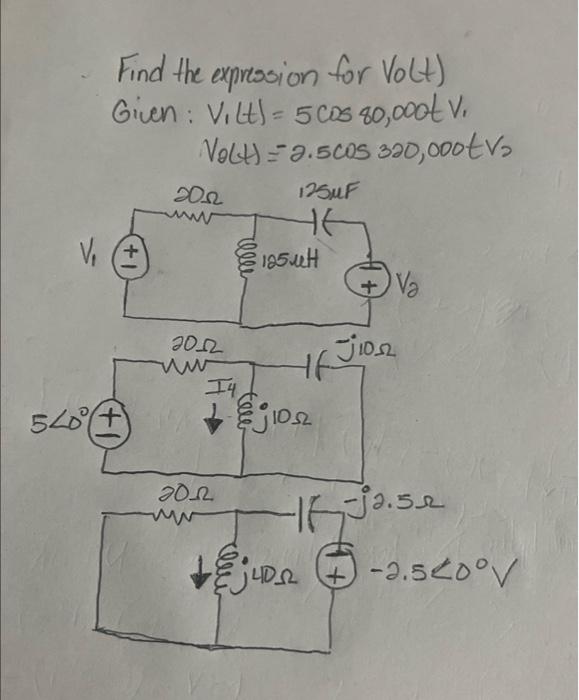 Find the expression for Vo(t)
Given: V1(t) = 5cos 80,000t V1
Vo(t) = -2.5cos 320,000t V2
20Ω 125μF
V1 + − 125μH − + V2
20Ω -j10Ω
I4
5∠0° + − j10Ω
20Ω -j2.5Ω
j40Ω − + -2.5∠0°V